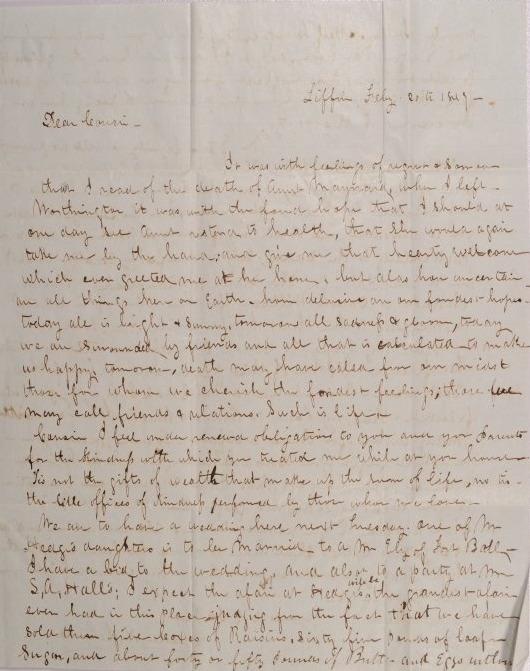 Tiffin Feby 20th 1849 -
Dear Cousin -
It was with feelings of regret & sorrow
that I read of the death of Aunt Maynard, when I left -
Worthington it was with the fond hope that I should at
one day see Aunt restored to health, that she would again
take me by the hand, and give me that hearty welcome
which ever greeted me at her home, but alas how uncertain
are all things here on Earth - how delusive are our fondest hopes -
today all is bright & sunny, tomorrow all sadness & gloom, today
we are surrounded by friends and all that is calculated to make
us happy tomorrow, death may have called from our midst
those for whom we cherish the fondest feelings; those we
may call friends & relations. Such is life -
Cousin I feel under renewed obligations to you and your Parents
for the kindness with which you treated me while at your house -
Tis not the gifts of wealth that make up the sum of life, no tis -
the little offices of kindness performed by those whom we love -
We are to have a wedding here next Tuesday. one of Mr
Hedges daughters is to be married to a Mr Ely of Fort Ball -
I have a bid to the wedding, and also to a party at Mr
S. A. Hall's; I expect the afair at Hedges will be the grandest afair
ever had in this place, judging from the fact that we have
sold them five boxes of Raisins, Sixty five pounds of loaf
Sugar, and about forty or fifty pounds of Butter and Eggs